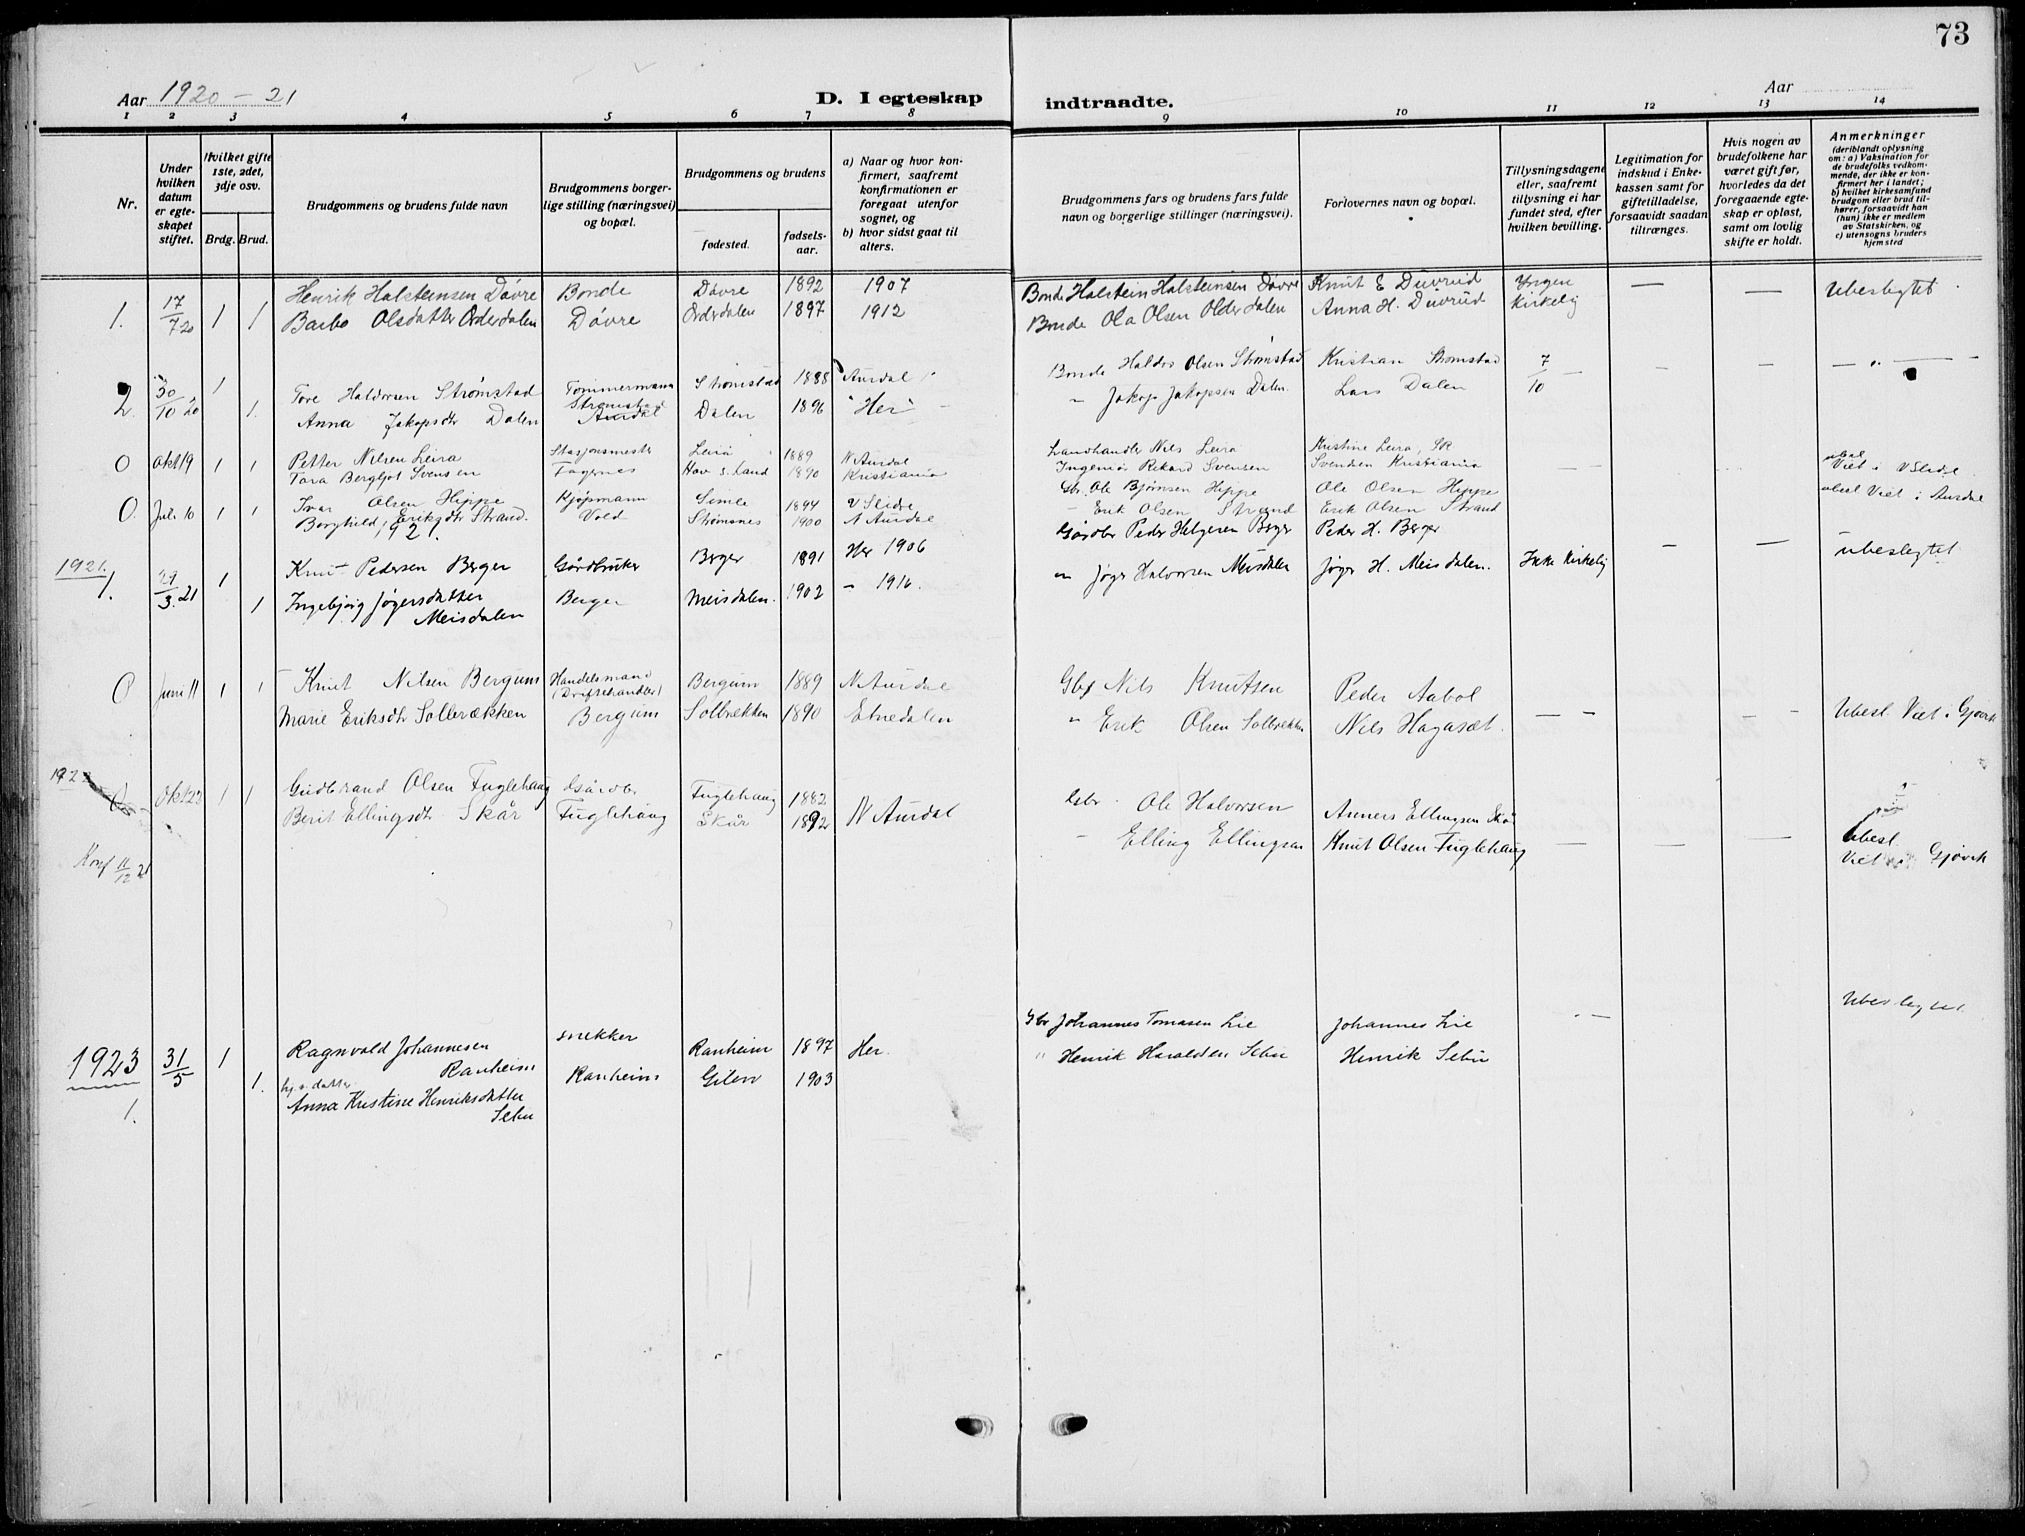 73
Aar 1920-21
D. I egteskap
indtraadte.
Aar
1 2 3 4 5 6 7 8 9 10 11 12 13 14
Nr.
Under hvilken datum er egteskapet stiftet.
Hvilket gifte 1ste, 2det, 3dje osv.
Brdg. Brud.
Brudgommens og brudens fulde navn
Brudgommens borgerlige stilling (næringsvei) og bopæl.
Brudgommens og brudens
fødested.
fødselsaar.
a) Naar og hvor konfirmert, saafremt konfirmationen er foregaat utenfor sognet, og
b) hvor sidst gaat til alters.
Brudgommens fars og brudens fars fulde navn og borgerlige stillinger (næringsvei).
Forlovernes navn og bopæl.
Tillysningsdagene eller, saafremt tillysning ei har fundet sted, efter hvilken bevilling.
Legitimation for indskud i Enkekassen samt for giftetilladelse, forsaavidt saadan tiltrænges.
Hvis nogen av brudefolkene har været gift før, hvorledes da det foregaaende egteskap er opløst, samt om lovlig skifte er holdt.
Anmerkninger
(deriblandt oplysning om: a) Vaksination for de brudefolks vedkommende, der ikke er konfirmert her i landet; b) hvilket kirkesamfund brudgom eller brud tilhører, forsaavidt han (hun) ikke er medlem av Statskirken, og c) utensogns bruders hjemsted
1. 17/7 20 1 Henrik Halsteinsen Døvre Bonde Døvre 1892 1907 Bonde Halstein Halsteinsen Døvre Knut E Duvrud Yngen — — Ubeslegtet
1 Barbo Olsdatter Orderdalen Døvre Orderdalen 1897 1912 Bonde Ola Olsen Olderdalen Anna H. Duvrud Kirkelig
2. 30/10 20 1 Tore Haldorsen Strømstad Tømmermann Strømstad 1888 Aurdal Bonde Haldor Olsen Strømstad Kristian Strømstad 7/10 — — — " —
1. Anna Jakopsdtr Dalen Strømstad Aurdal Dalen 1896 "Her" " Jakop Jakopsen Dalen. Lars Dalen
0 Okt 19 1 1 Petter Nilsen Leira Stasjonsmester Leira 1889 N Aurdal Landhandler Nils Leira Kristine Leira, SR ubesl
Tora Bergljot Svensen Fagernes Hov S. Land 1890 Kristiania Ingeniør Rikard Svensen Svendsen Kristiania Viet i V Slidre
0. Juli 10 1 1 Ivar Olsen Hippe Kjøpmann Semle 1894 V Slidre Gbr. Ole Bjørnsen Hippe Ole Olsen Hippe ubesl Viet i Aurdal
Borghild Eriksdtr Strand. Vold Strømnes 1900 N Aurdal - Erik Olsen Strand Erik Olsen Strand
1921.
1921.
1. 29/3. 21 1 Knut Pedersen Berger Gårdbruker Berger 1891 Her 1906 Gårdbr Peder Helgesen Berger Peder H. Berger — — ubeslegtet
1 Ingebjørg Jøgersdatter Meisdalen Berger Meisdalen. 1902 - 1916. " Jøger Halvorsen Meisdalen Jøger H. Meisdalen. Ikke Kirkelig
0 Juni 11 1 1 Knut Nilsen Bergum Handelsmand (Driftehandler) Bergum 1889 N Aurdal Gbr Nils Knutsen Peder Aabol
Marie Eriksdtr Solbrækken Bergum Solbrekken 1890 Etnedalen " Erik Olsen Solbrekken Nils Hagasæt. — — — — Ubesl. Viet i Gjøvik
1922
0 Okt 22 1 1 Gudbrand Olsen Fuglehaug Gårdbr Fuglehaug 1882 N Aurdal Gbr. Ole Halvorsen
Berit Ellingsdtr Skår Fuglehaug Skår 1892 - Elling Ellingsen Knut Olsen Fuglehaug — — — Ubesl.
Viet i Gjøvik
Konf 11/12 21
Ubeslegtet
1923 31/5 1 Ragnvald Johannesen Ranheim snekker Ranheim 1897 Her. Gbr Johannes Tomasen Lie Johannes Lie
1. Anna Kristine Henriksdatter Sebu Ranheim 1903 " Henrik Haraldsen Sebu Henrik Sebu
1.